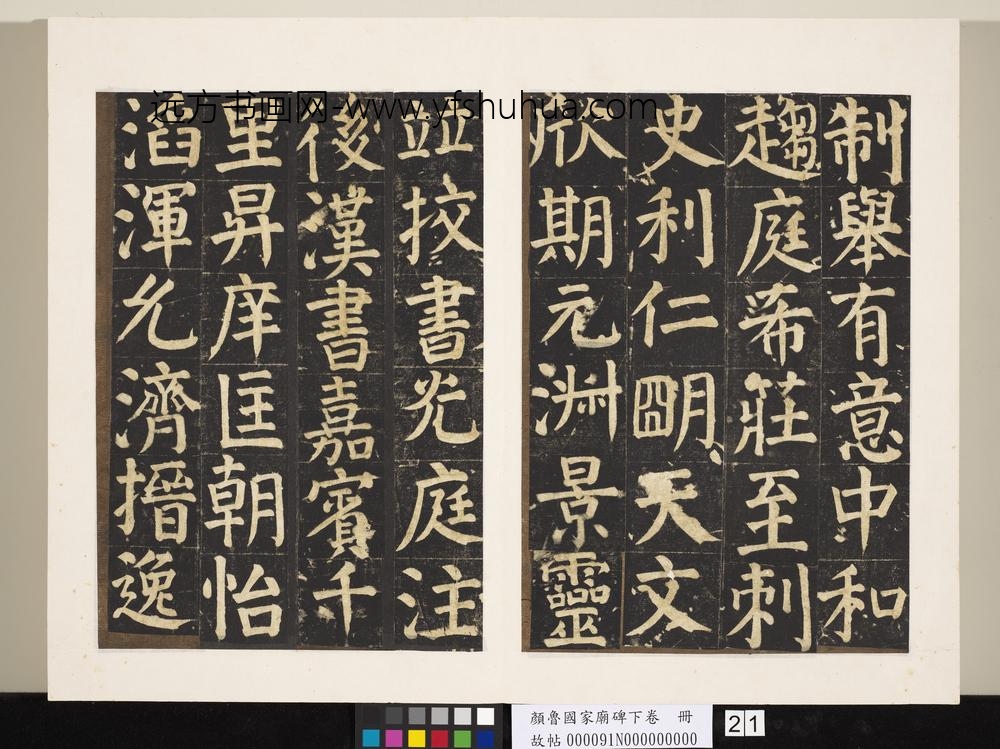 制舉有意中和
趨庭希莊至刺
史利仁朙天文
欣期元淋景靈
並挍書光庭注
後漢書嘉賓千
里昇庠匡朝怡
滔渾允濟搢逸
远方书画网-www.yfshuhua.com
顏魯國家廟碑下卷 冊
故帖 000091N000000000
21